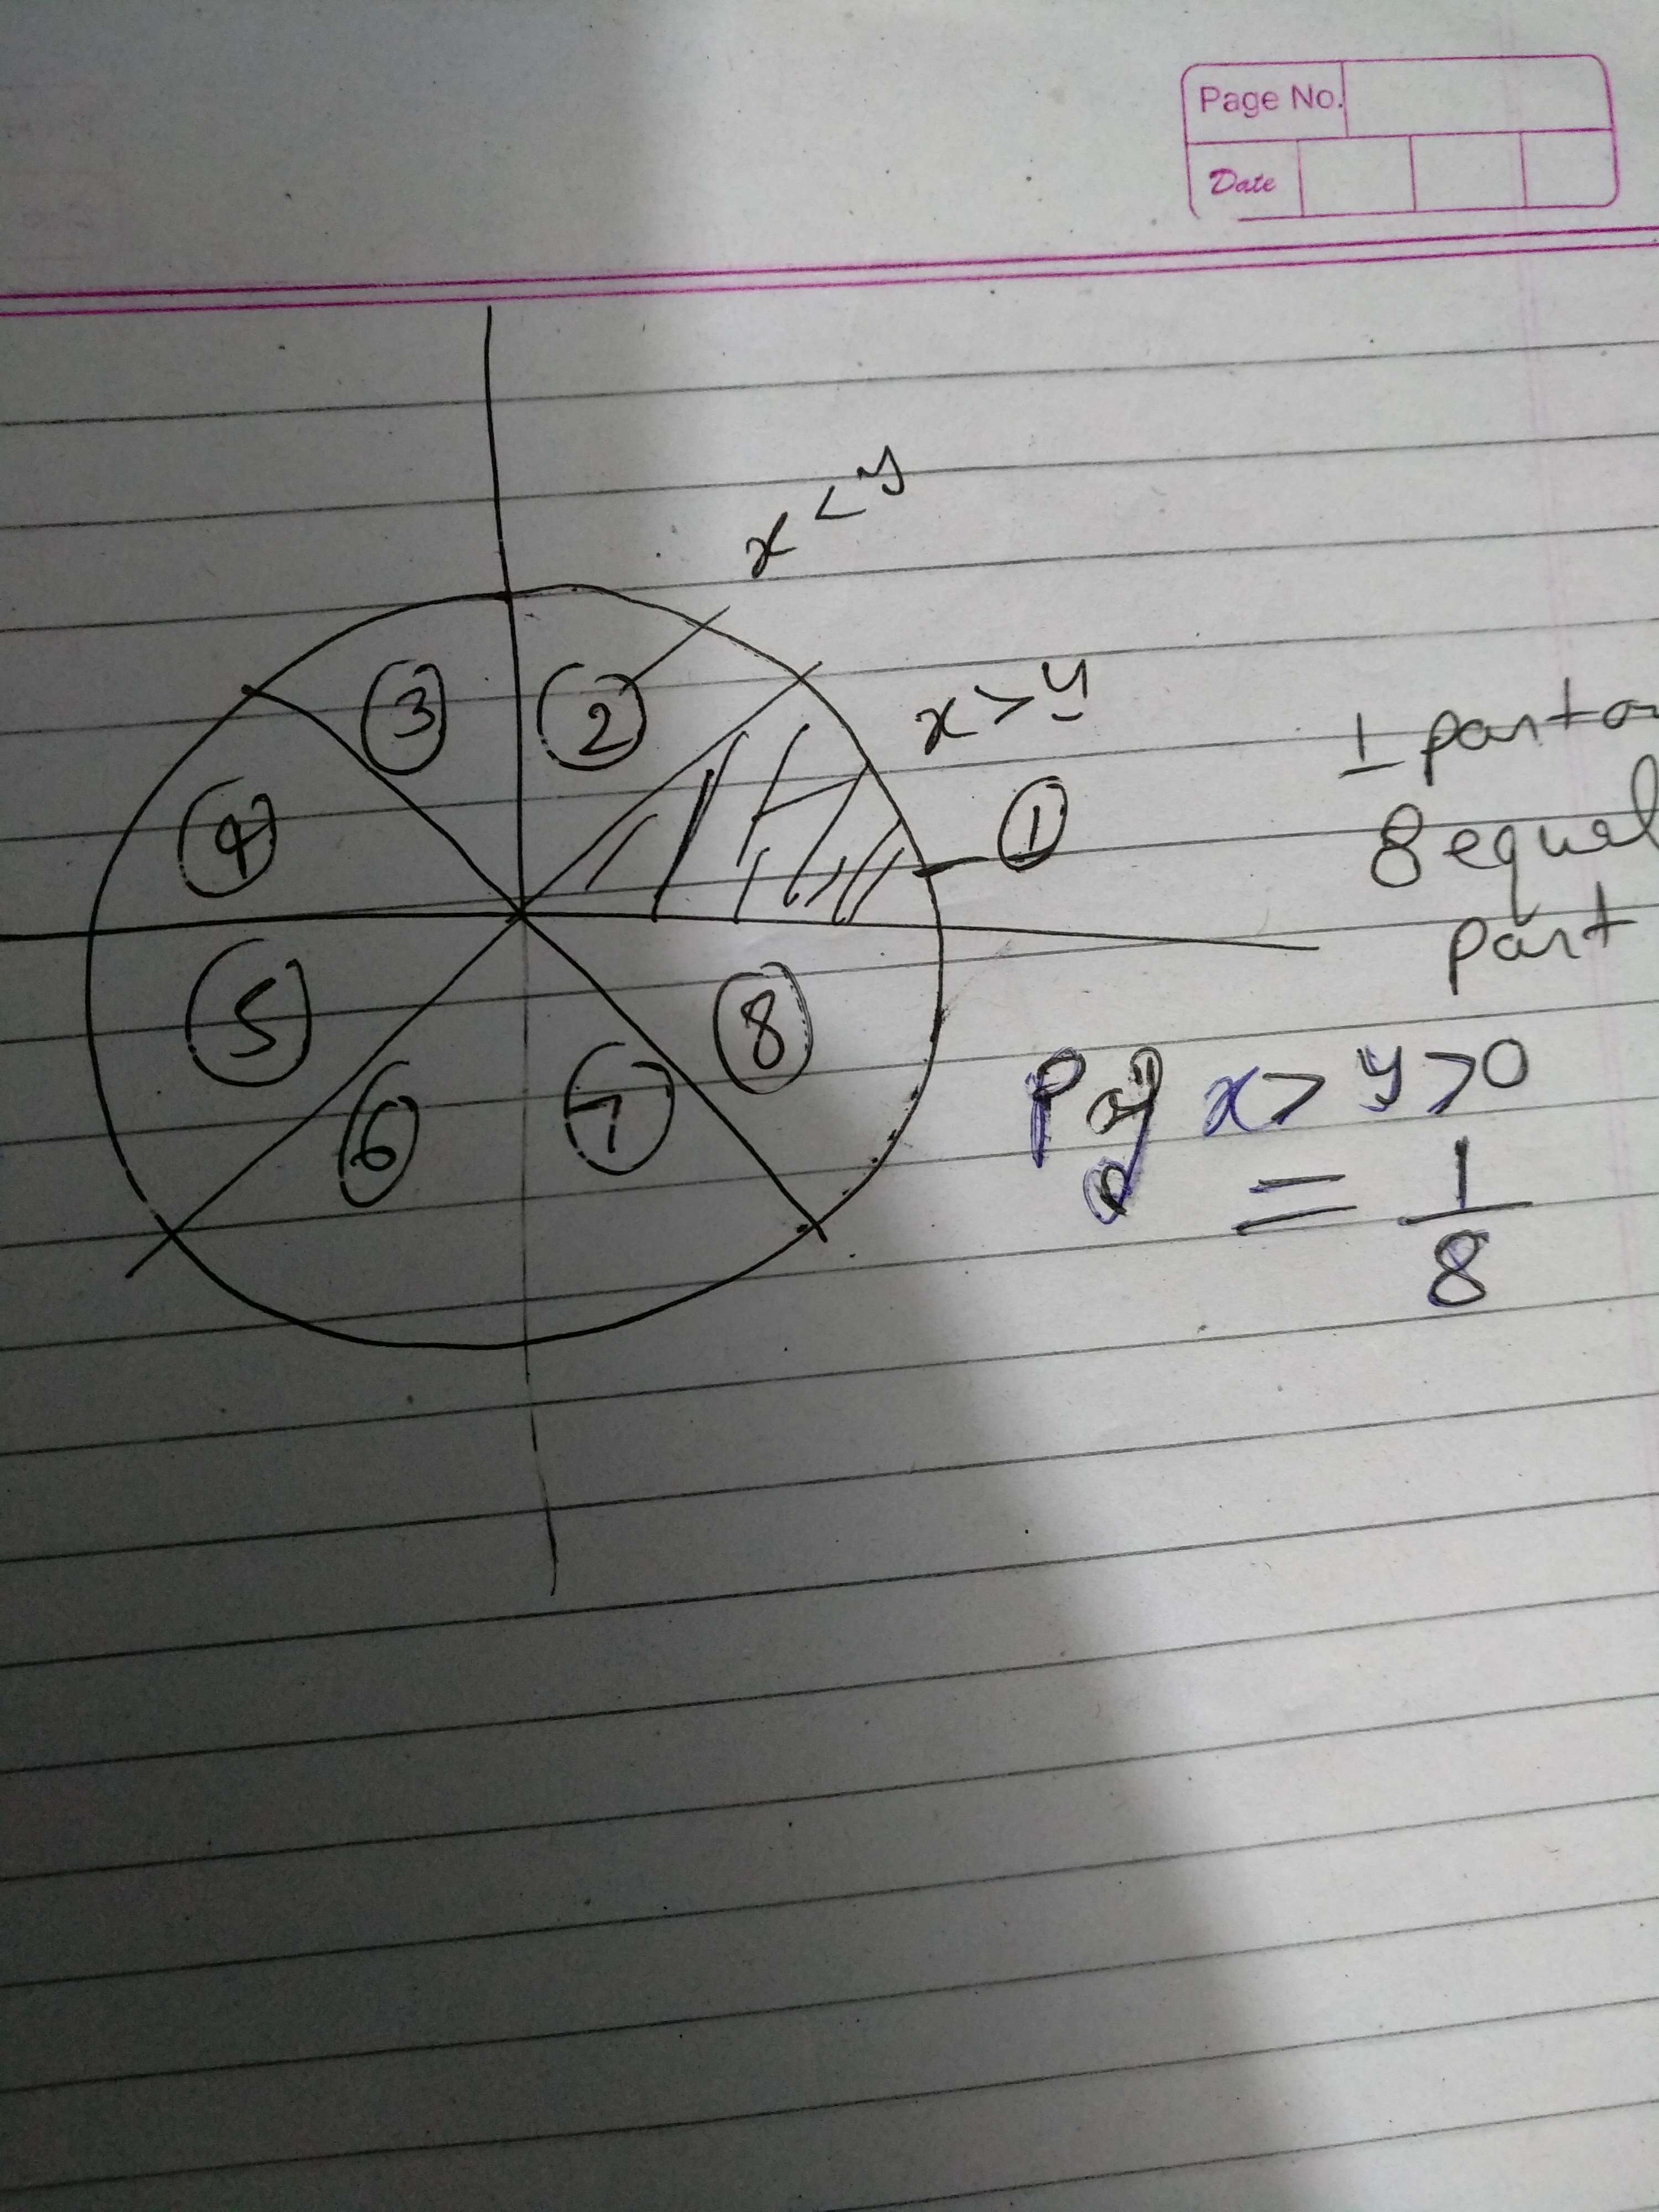 Page No.
Date
x < y
x > y
3
2
4
1
1 part
8 equal
part
5
8
6
7
P of x > y > 0
= 1/8